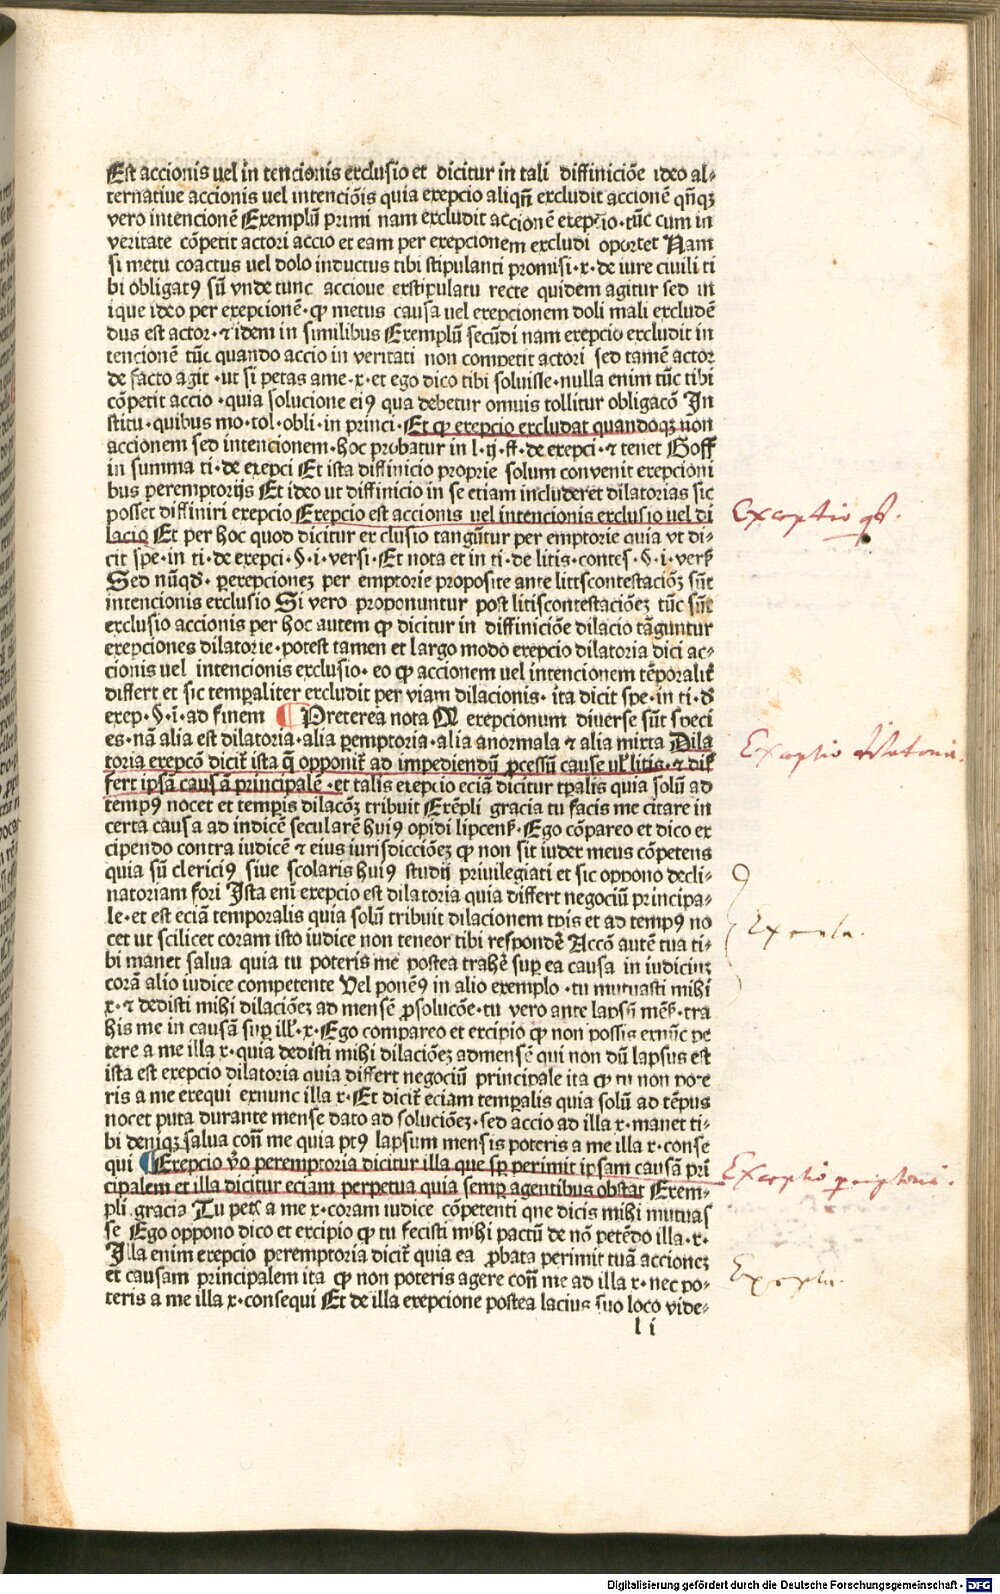 Est accionis uel in tencionis exclusio et dicitur in tali diffiniciōe ideo al⸗
ternatiue accionis uel intenciōis quia exepcio aliqñ excludit accionē qñqꝫ
vero intencionē Exemplū primi nam excludit accionē exepcio·tūc cum in
veritate cōpetit actori accio et eam per exepcionem excludi oportet Nam
si metu coactus uel dolo inductus tibi stipulanti promisi·x·de iure ciuili ti
bi obligatꝰ sū vnde tunc accione exstipulatu recte quidem agitur sed in
ique ideo per exepcionē·ꝙ metus causa uel exepcionem doli mali excludē
dus est actor·⁊ idem in similibus Exemplū secūdi nam exepcio excludit in
tencionē tūc quando accio in veritati non competit actori sed tamē actor
de facto agit·ut si petas ame·x·et ego dico tibi soluisse·nulla enim tūc tibi
cōpetit accio·quia solucione eiꝰ qua debetur omnis tollitur obligacō In
stitu·quibus mo·tol·obli·in princi·Et ꝙ exepcio excludat quandoqꝫ non
accionem sed intencionem·hoc probatur in l·ij·ff·de exepci·⁊ tenet Goff
in summa ti·de exepci Et ista diffinicio proprie solum conuenit exepcioni
bus peremptorijs Et ideo ut diffinicio in se etiam includeret dilatorias sic
posset diffiniri exepcio Exepcio est accionis uel intencionis exclusio uel di
lacio Et per hoc quod dicitur ex clusio tangūtur per emptorie quia vt di⸗
cit spe·in ti·de exepci·§·i·versi·Et nota et in ti·de litis·contes·§·i·vers̄
Sed nūqd·perexpcionez per emptorie proposite ante litiscontestaciōꝫ sūt
intencionis exclusio Si vero proponuntur post litiscontestaciōeꝫ tūc sūt
exclusio accionis per hoc autem ꝙ dicitur in diffiniciōe dilacio tāguntur
exepciones dilatorie·potest tamen et largo modo exepcio dilatoria dici ac⸗
cionis uel intencionis exclusio·eo ꝙ accionem uel intencionem tēporalit̄
differt et sic temꝑaliter excludit per viam dilacionis·ita dicit spe·in ti·d̄
exep·§·i·ad finem Preterea nota exepcionum diuerse sūt speci
es·nā alia est dilatoria·alia ꝑemptoria·alia anormala ⁊ alia mixta Dila
toria exepcō dicit̄ ista q̄ opponit̄ ad impediendū ꝓcessū cause ul̄ litis·⁊ dif
fert ipsā causā principalē·et talis exepcio eciā dicitur tꝑalis quia solū ad
tempꝰ nocet et temꝑis dilacōꝫ tribuit Exēpli gracia tu facis me citare in
certa causa ad iudicē secularē huiꝰ opidi lipcens̄·Ego cōpareo et dico ex
cipendo contra iudicē ⁊ eius iurisdicciōeꝫ ꝙ non sit iudex meus cōpetens
quia sū clericiꝰ siue scolaris huiꝰ studij priuilegiati et sic oppono decli⸗
natoriam fori Ista eni exepcio est dilatoria quia differt negociū principa⸗
le·et est eciā temporalis quia solū tribuit dilacionem tꝑis et ad tempꝰ no
cet ut scilicet coram isto iudice non teneor tibi respondē Accō autē tua ti⸗
bi manet salua quia tu poteris me postea trahē suꝑ ea causa in iudiciuꝫ
corā alio iudice competente Vel ponēꝰ in alio exemplo·tu mutuasti mihi
x·⁊ dedisti mihi dilaciōeꝫ ad mensē ꝑsolucōe·tu vero ante lapsū mēs̄·tra
his me in causā suꝑ ill̄·x·Ego compareo et excipio ꝙ non possis exnūc pe
tere a me illa x·quia dedisti mihi dilaciōeꝫ admensē qui non dū lapsus est
ista est exepcio dilatoria quia differt negociū principale ita ꝙ tu non pote
ris a me exequi exnunc illa x·Et dicit̄ eciam temꝑalis quia solū ad tēpus
nocet puta durante mense dato ad soluciōeꝫ·sed accio ad illa x·manet ti⸗
bi deniqꝫ salua coñ me quia ptꝰ lapsum mensis poteris a me illa x·conse
qui Exepcio v̄o peremptoria dicitur illa que sꝑ perimit ipsam causā pri
cipalem et illa dicitur eciam perpetua quia semꝑ agentibus obstat Exem⸗
pli gracia Tu petis a me x·coram iudice cōpetenti que dicis mihi mutuas
se Ego oppono dico et excipio ꝙ tu fecisti mihi pactū de nō petēdo illa·x·
Illa enim exepcio peremptoria dicit̄ quia ea ꝓbata perimit tuā accioneꝫ
et causam principalem ita ꝙ non poteris agere coñ me ad illa x·nec po⸗
teris a me illa x·consequi Et de illa exepcione postea lacius suo loco vide⸗
l i
Exceptio qd.
Exceptio dilatoria.
Exempla.
Exceptio peremptoria.
Exempla.
Digitalisierung gefördert durch die Deutsche Forschungsgemeinschaft - DFG